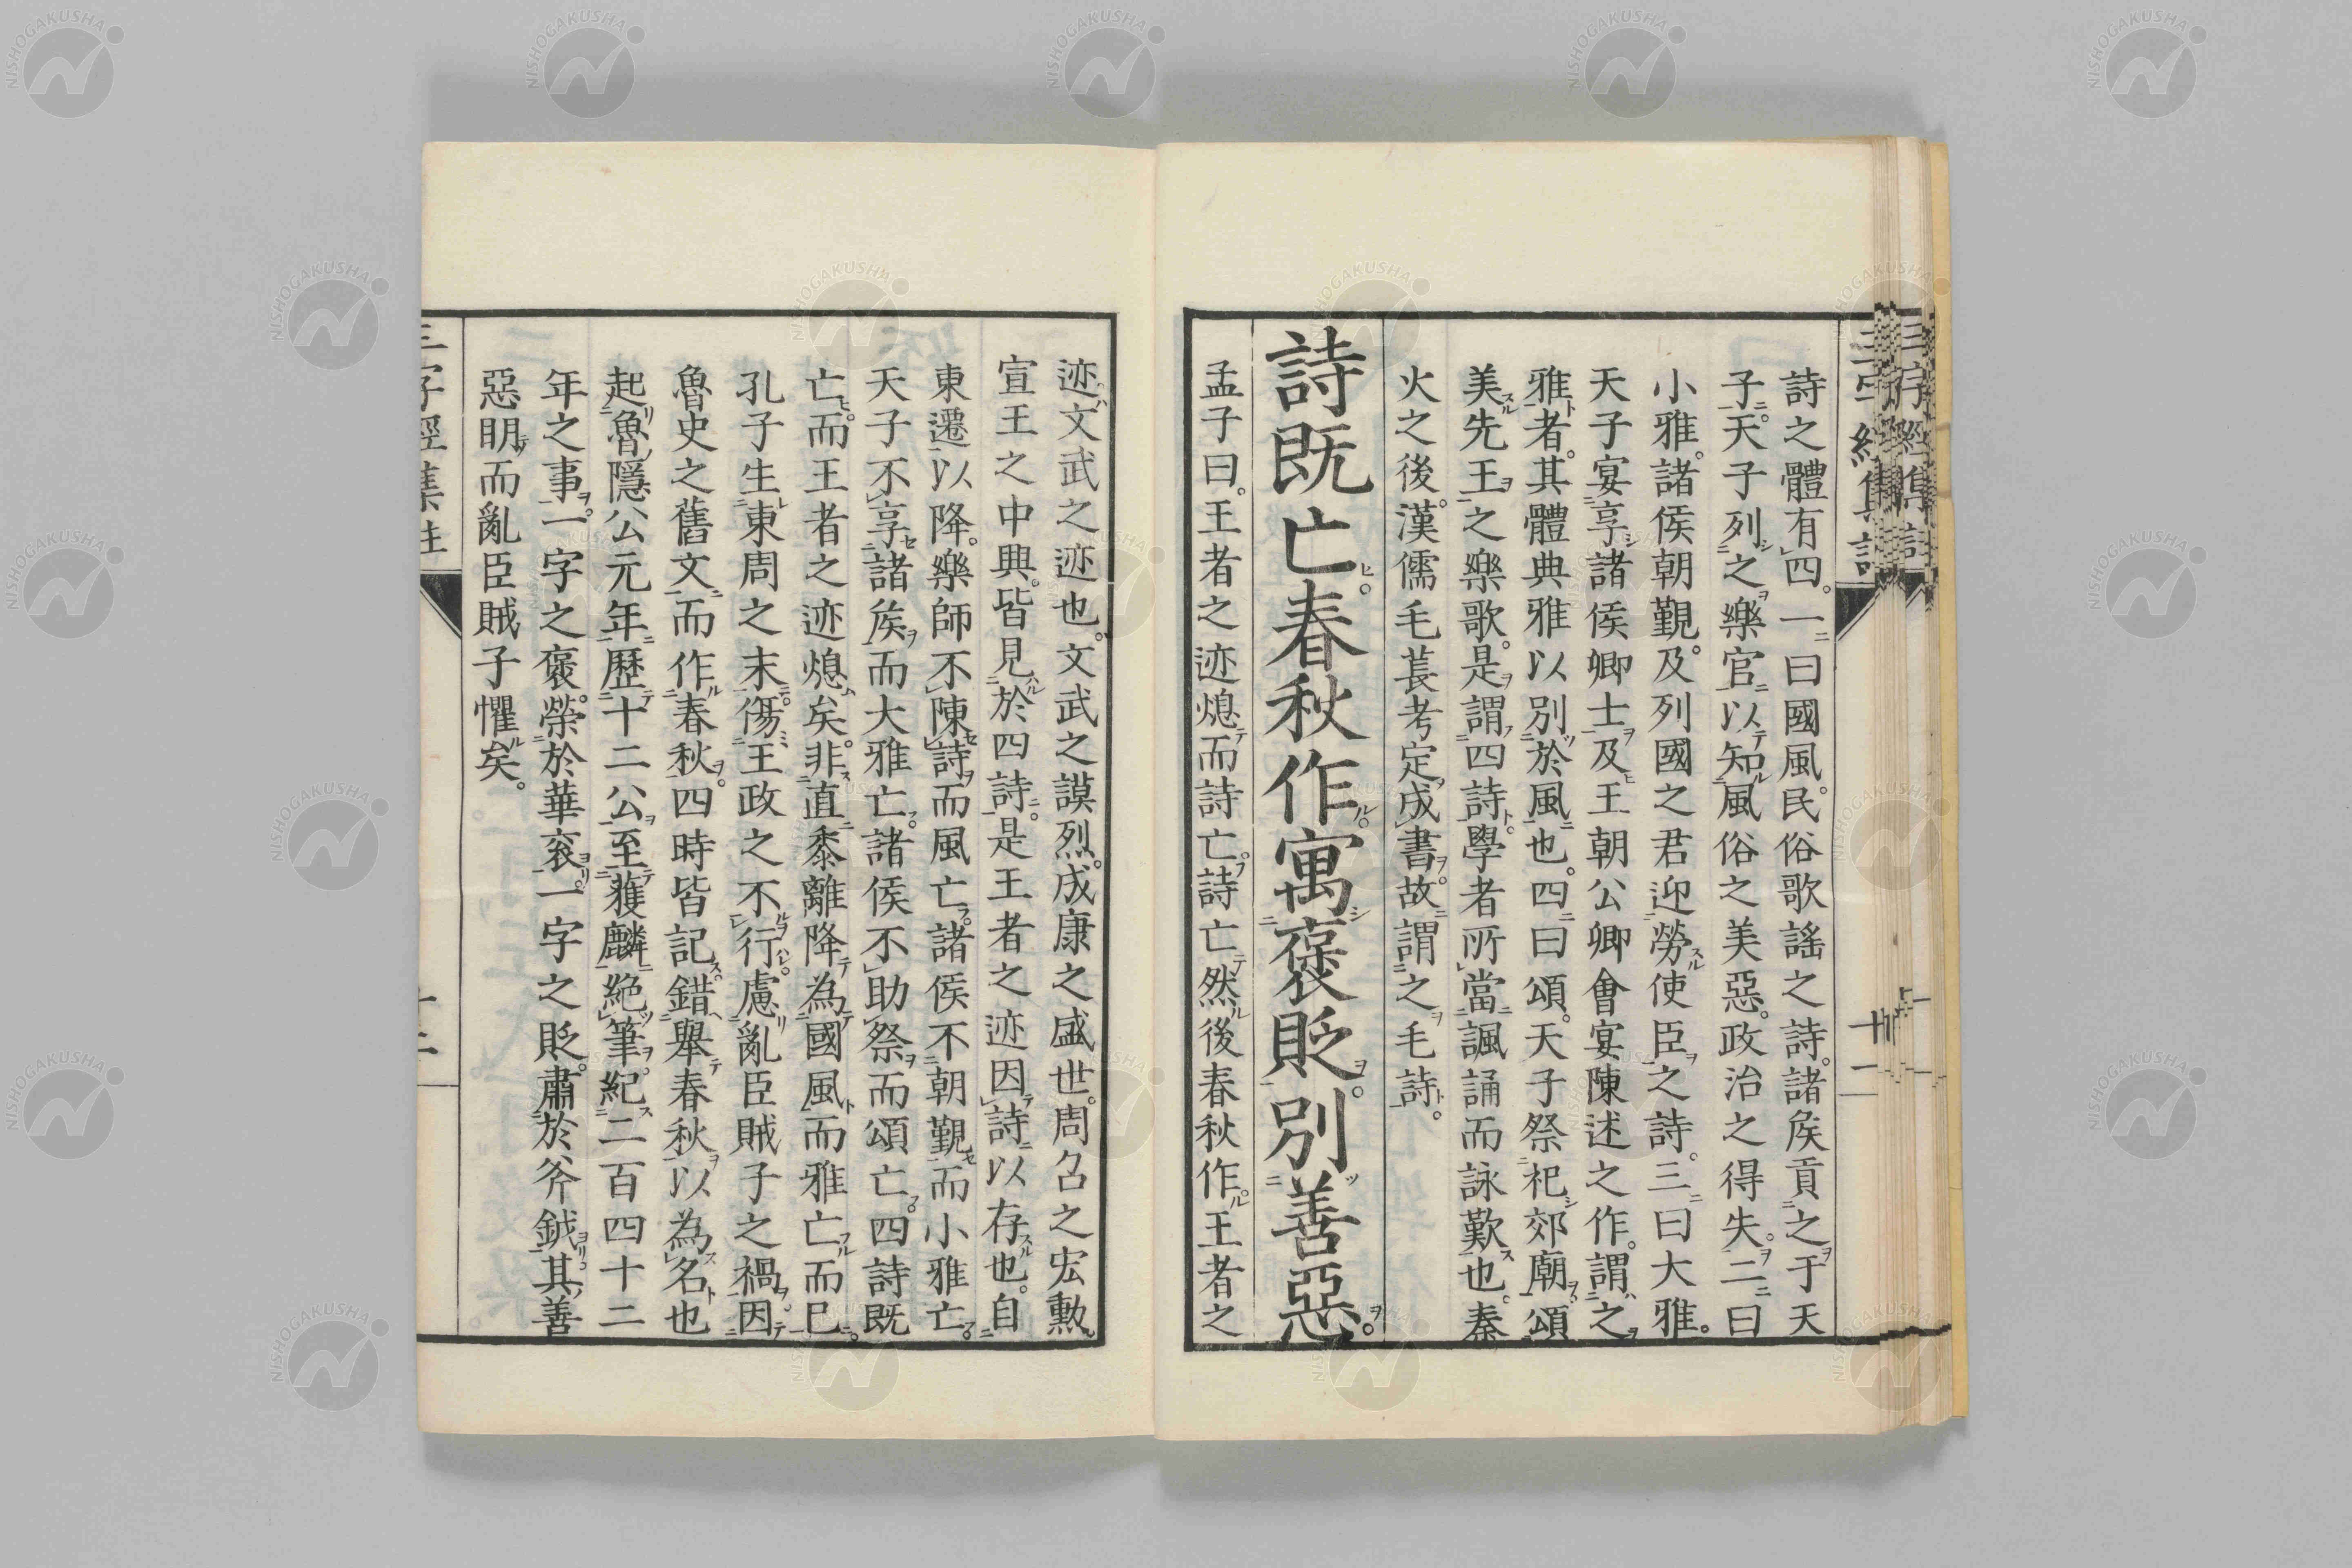 詩之體有四。一曰國風。民俗歌謠之詩。諸矦貢之于天
子。天子列之樂官以知風俗之美惡。政治之得失。二曰
小雅。諸侯朝覲。及列國之君迎勞使臣之詩。三曰大雅。
天子宴享諸侯卿士及王朝公卿會宴陳述之作。謂之
雅者。其體典雅以別於風也。四曰頌。天子祭祀郊廟頌
美先王之樂歌。是謂四詩。學者所當諷誦而詠歎也。秦
火之後。漢儒毛萇考定成書。故謂之毛詩。
詩既亡。春秋作。寓褒貶。別善惡。
孟子曰。王者之迹熄而詩亡。詩亡然後春秋作。王者之
迹文武之迹也。文武之謨烈。成康之盛世。周召之宏勲。
宣王之中興。皆見於四詩。是王者之迹因詩以存也。自
東遷以降。樂師不陳詩而風亡。諸侯不朝覲而小雅亡。
天子不享諸矦而大雅亡。諸侯不助祭而頌亡。四詩既
亡。而王者之迹熄矣。非直黍離降為國風而雅亡而已。
孔子生東周之末。傷王政之不行。慮亂臣賊子之禍。因
魯史之舊文而作春秋。四時皆記。錯舉春秋以為名也
起魯隱公元年歷十二公至獲麟絕筆。紀二百四十二
年之事。一字之褒。榮於華衮。一字之貶。肅於斧鉞。其善
惡明而亂臣賊子懼矣。
三字經集註
十二
三字經集註
十二
NISHOGAKUSHA